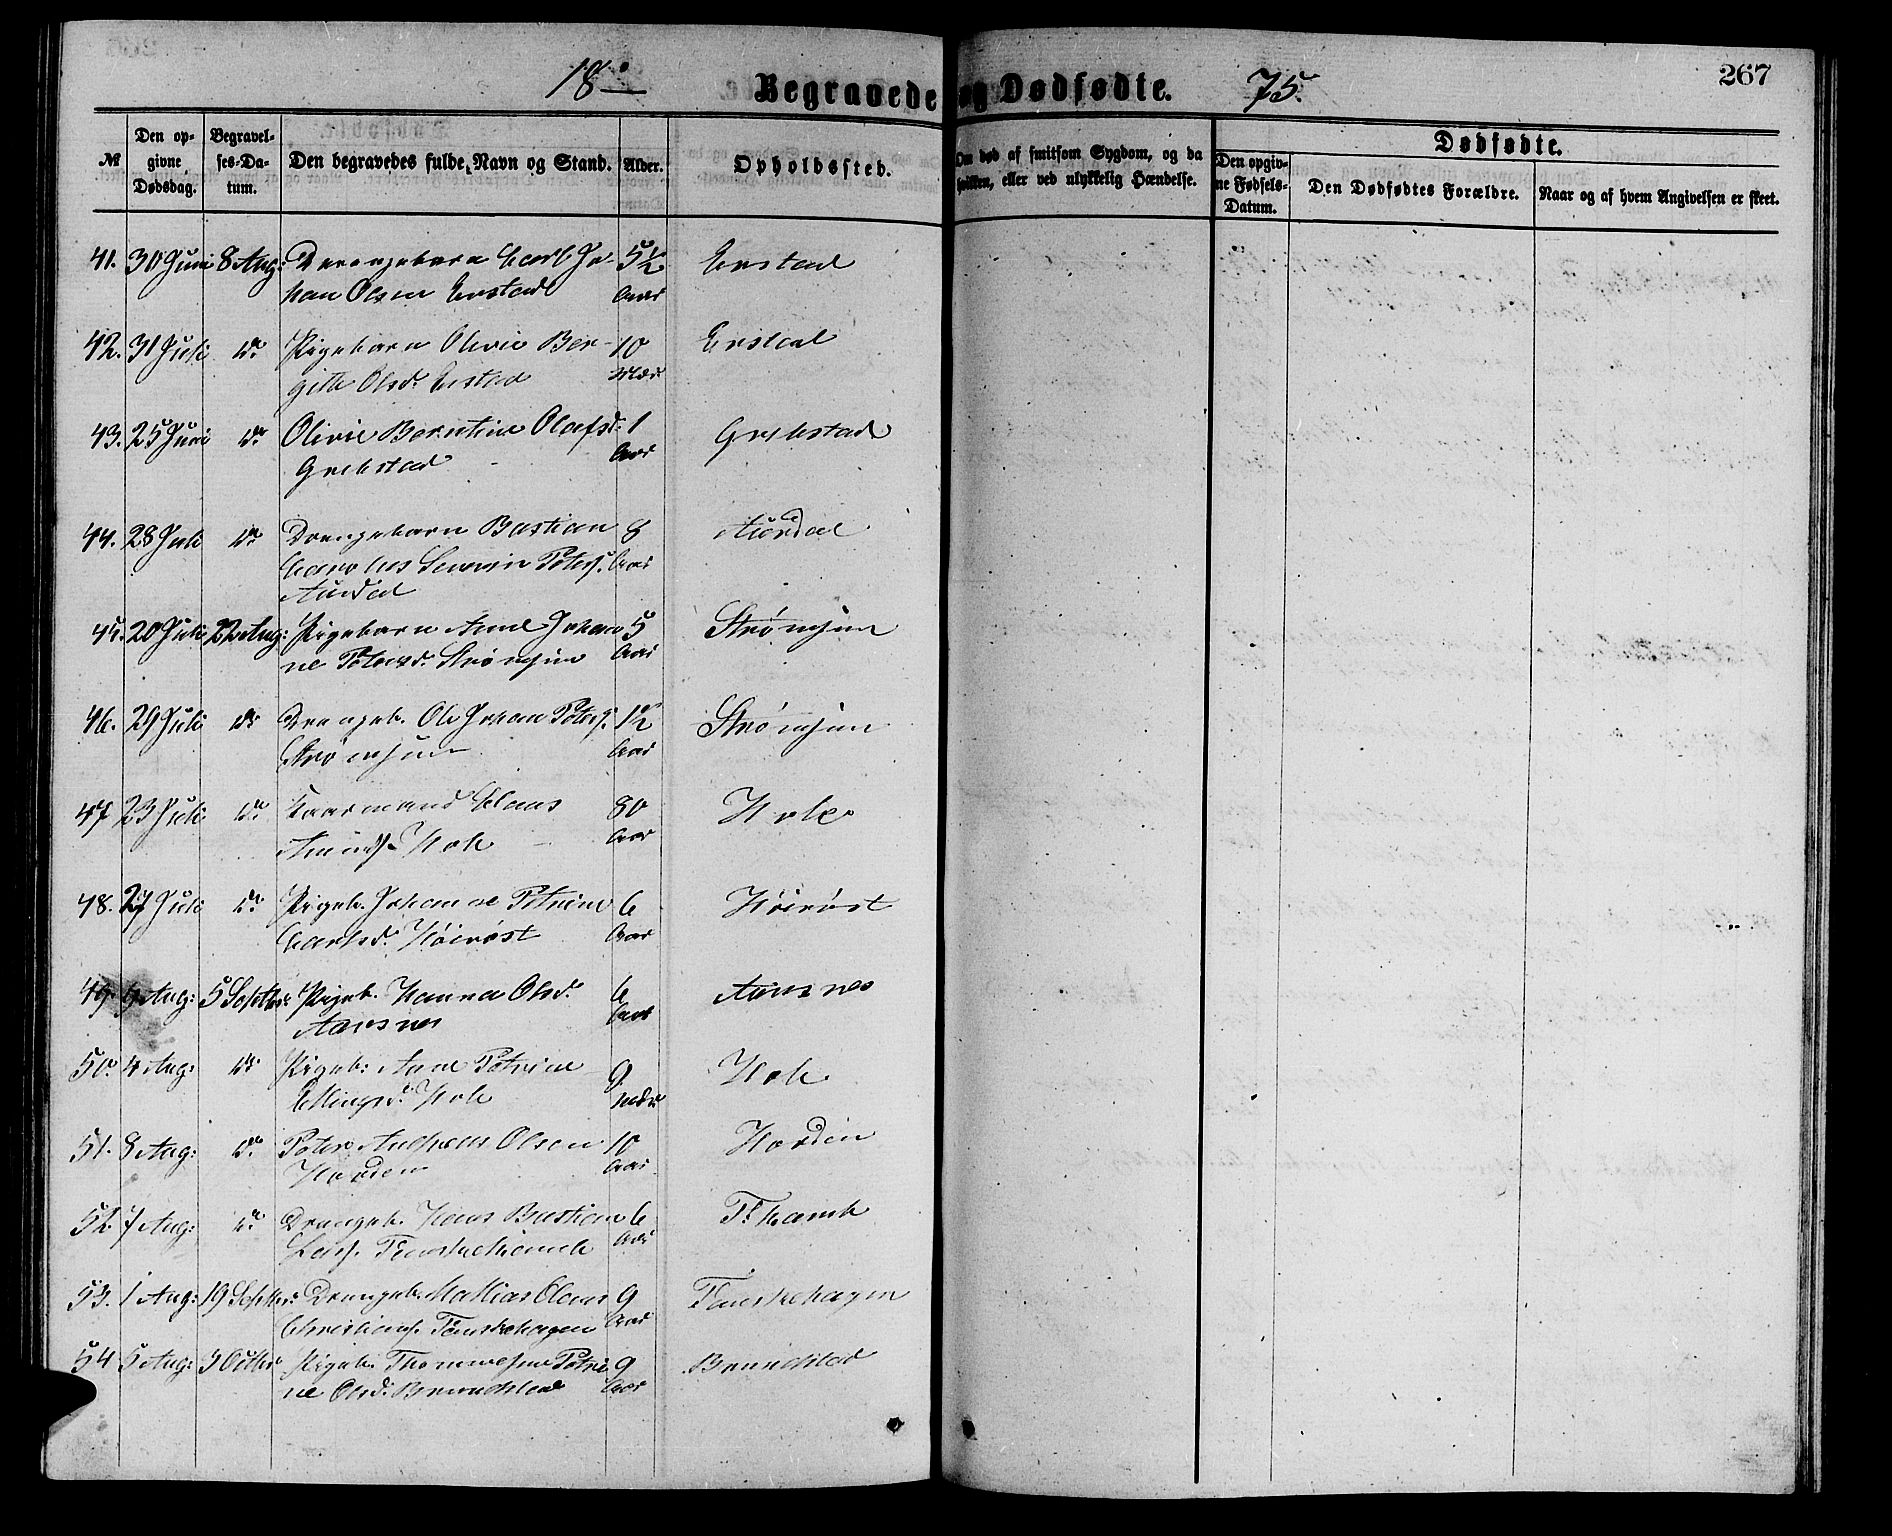 18 Begravede og Dødfødte. 75. 267
№ Den opgivne Dødsdag. Begravelses-Datum. Den begravedes fulde Navn og Stand. Alder. Opholdssted. Om død af smitsom Sygdom, og da hvilken, eller ved ulykkelig Hændelse. Dødfødte.
Den opgivne Fødsels-Datum. Den Dødfødtes Forældre. Naar og af hvem Angivelsen er skeet.
41. 30 Juni 8 Aug: Drengebarn Carl Jo- 5½ Erstad
han Olsen Erstad Aar
42. 31 Juli do Pigebarn Olivie Ber- 10 Erstad
gitte Olsd. Erstad Mdr
43. 25 Juni do Olivie Berntine Olafsd: 1 Grebstad
Grebstad Aar
44. 28 Juli do Drengebarn Bastian 8 Aurdal
Carolus Severin Peters. Aar
Aurdal
45. 20 Juli 22 Aug: Pigebarn Anne Johan 5 Strømhjim
ne Petersd. Strømhjim Aar
46. 29 Juli do Drengeb. Ole Johan Peters. 1½ Strømhjim
Strømhjim Aar
47 23 Juli do Kaarmand Claus 80 Hole
Amunds. Hole Aar
48. 27 Juli do Pigeb. Johanne Petrine 6 Höiröst
Carlsd. Höiröst Aar
49. 9 Aug: 5 Septbr: Pigeb. Hanna Olsd. 6 Aursnes
Aursnes Aar
50. 4 Aug: do Pigeb: Anne Petrine 9 Hole
Ellingsd. Hole Mdr
51. 8 Aug: do Peter Andreas Olsen 10 Hovden
Hovden Aar
52. 7 Aug: do Drengeb. Hans Bastian 6
Lars. Aar
53. 1 Aug: 19 Septbr: Drengeb. Mathias Claus 9 Fauskehagen
Christians. Fauskehagen Aar
54 5 Aug: 3 Octbr Pigeb. Petri 9 Brundstad
ne Olsd. Brundstad Aar